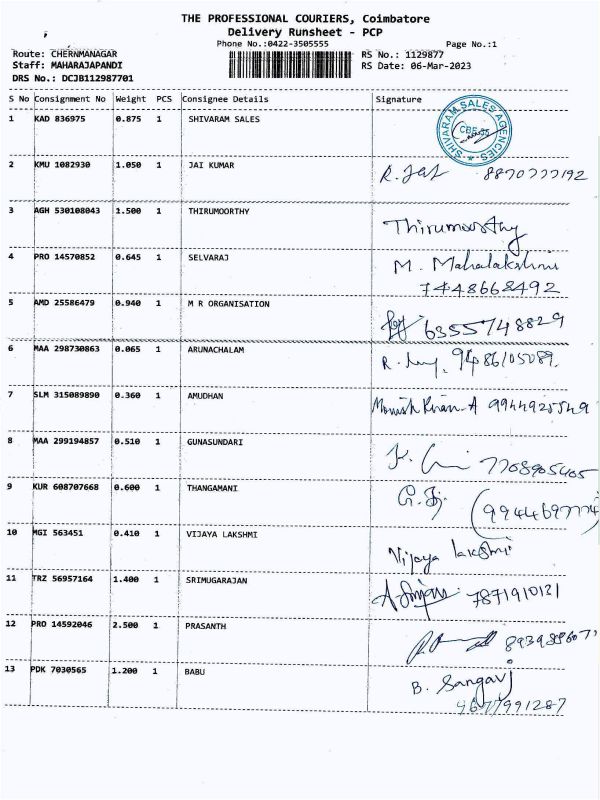 THE PROFESSIONAL COURIERS, Coimbatore
Delivery Runsheet - PCP
Phone No.:0422-3505555 Page No.:1
Route: CHERNMANAGAR RS No.: 1129877
Staff: MAHARAJAPANDI RS Date: 06-Mar-2023
DRS No.: DCJB112987701
S No Consignment No Weight PCS Consignee Details Signature
1 KAD 836975 0.875 1 SHIVARAM SALES
SHIVARAM SALES AGENCIES
2 KMU 1082930 1.050 1 JAI KUMAR 8870777192
3 AGH 530108043 1.500 1 THIRUMOORTHY Thirumoorthy
4 PRO 14570852 0.645 1 SELVARAJ M. Mahalakshmi
7448668492
5 AMD 25586479 0.940 1 M R ORGANISATION 6355748829
6 MAA 298730863 0.065 1 ARUNACHALAM 9486105089.
7 SLM 315089890 0.360 1 AMUDHAN
8 MAA 299194857 0.510 1 GUNASUNDARI 7708905405
9 KUR 608707668 0.600 1 THANGAMANI
10 MGI 563451 0.410 1 VIJAYA LAKSHMI Vijaya lakshmi
11 TRZ 56957164 1.400 1 SRIMUGARAJAN 7871910131
12 PRO 14592046 2.500 1 PRASANTH
13 PDK 7030565 1.200 1 BABU B. Sangavi